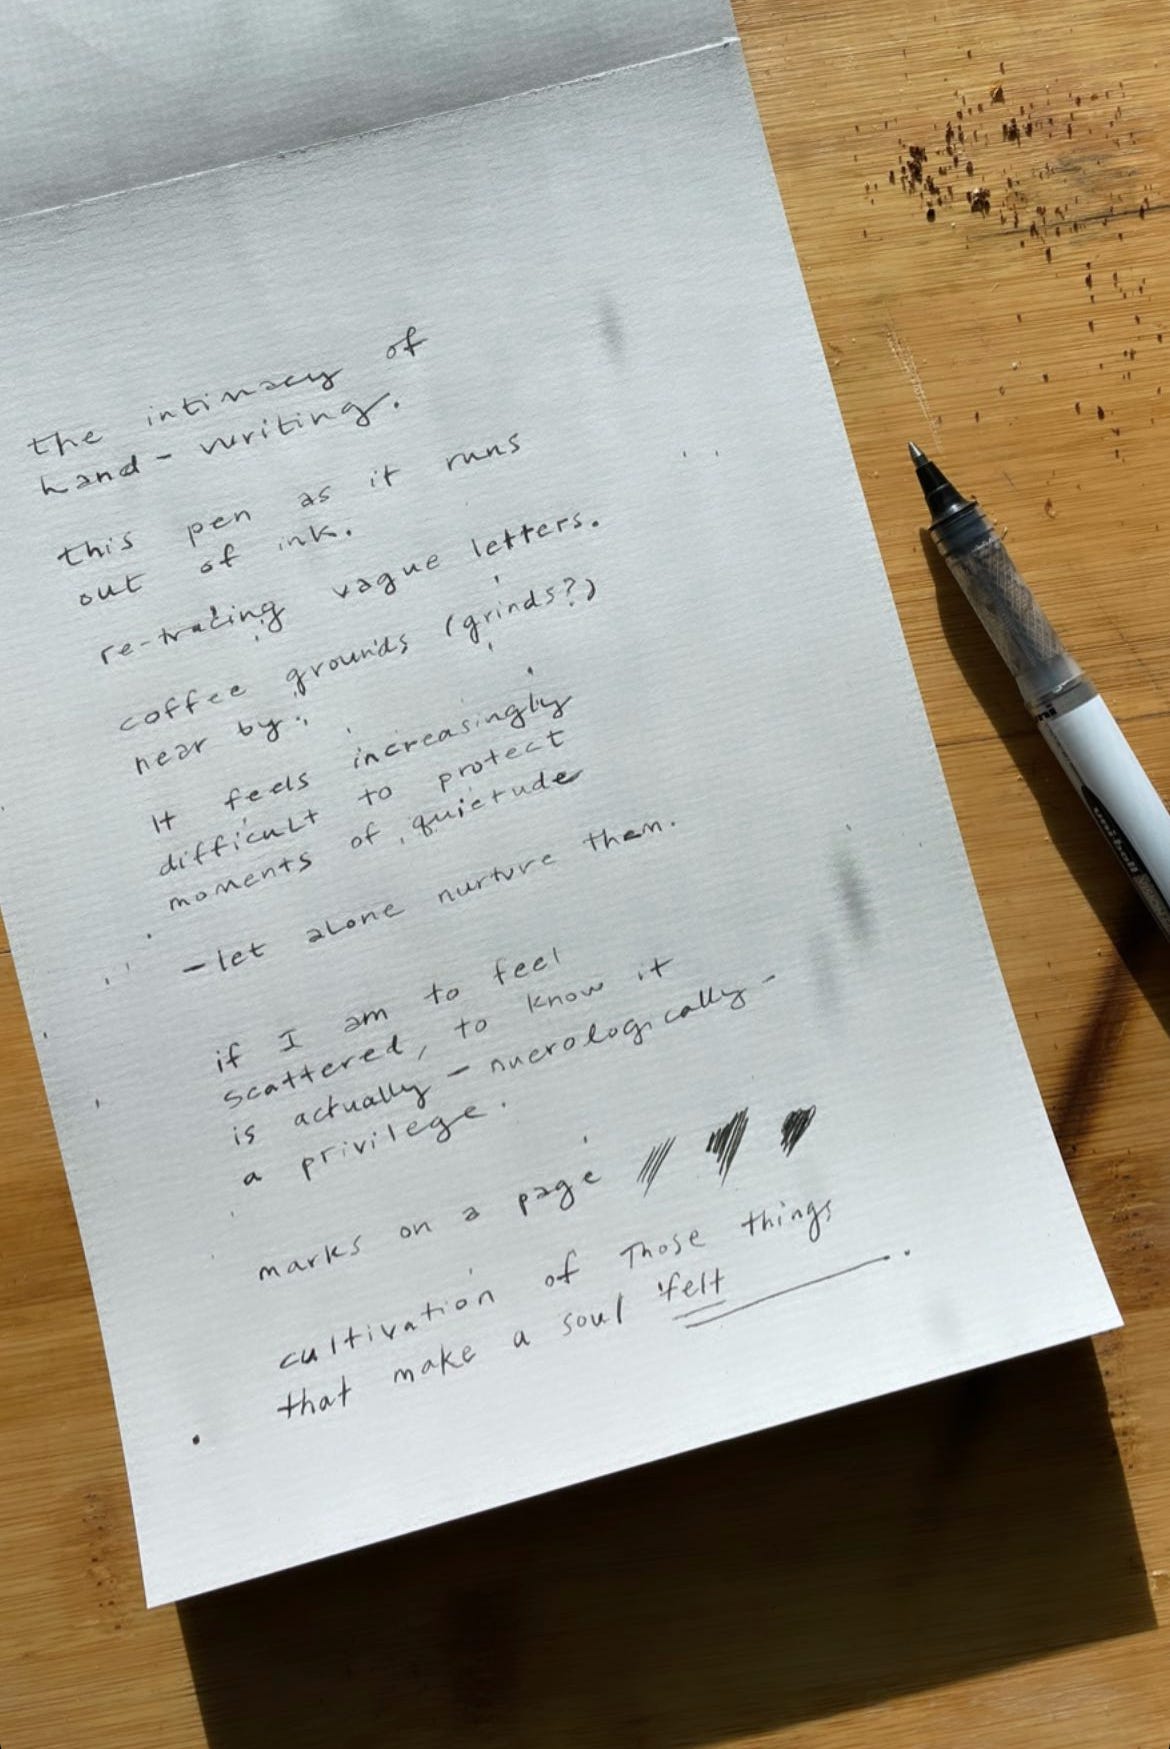 the intimacy of
hand-writing.
this pen as it runs
out of ink.
re-tracing vague letters.
coffee grounds (grinds?)
near by.
It feels increasingly
difficult to protect
moments of quietude
-let alone nurture them.
if I am to feel
scattered, to know it
is actually - nuerologically -
a privilege.
marks on a page
cultivation of Those things
that make a soul felt
uni
uni-ball